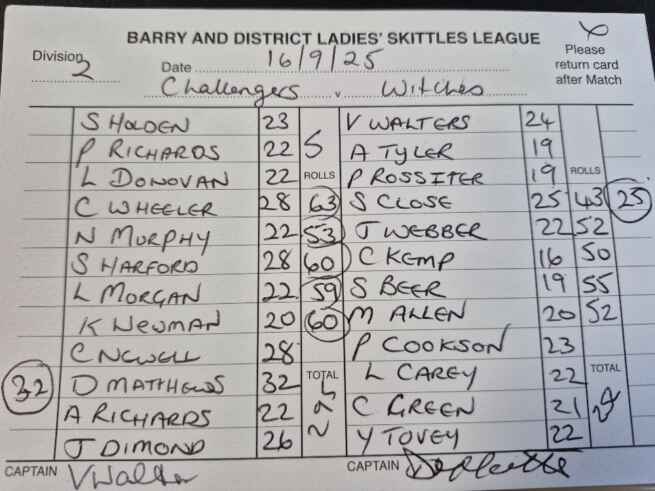 BARRY AND DISTRICT LADIES' SKITTLES LEAGUE
Division 2
Date 16/9/25
Please return card after Match
Challengers v Witches
S HOLDEN 23 V WALTERS 24
P RICHARDS 22 5 A TYLER 19
L DONOVAN 22 ROLLS P ROSSITER 19 ROLLS
C WHEELER 28 63 S CLOSE 25 43 25
N MURPHY 22 53 J WEBBER 22 52
S HARFORD 28 60 C KEMP 16 50
L MORGAN 22 59 S BEER 19 55
K NEWMAN 20 60 M ALLEN 20 52
C NEWELL 28 P COOKSON 23
32 D MATTHEWS 32 TOTAL 295 L CAREY 22 TOTAL
A RICHARDS 22 C GREEN 21
J DIMOND 26 Y TOVEY 22
CAPTAIN V Walter CAPTAIN